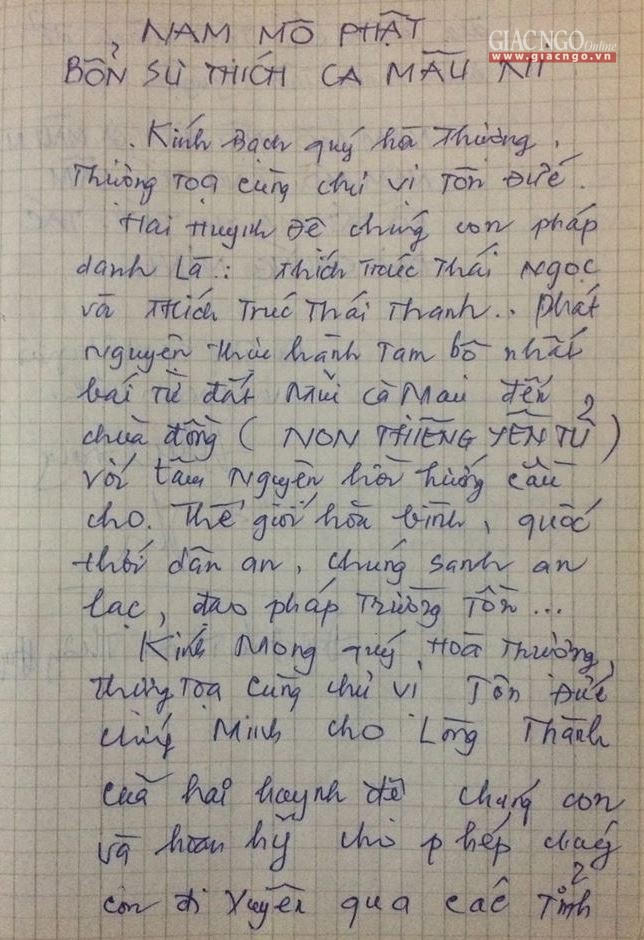 NAM MÔ PHẬT
BỔN SƯ THÍCH CA MÂU NI
GIÁC NGỘ Online
www.giacngo.vn
Kính Bạch quý hòa Thượng,
Thượng Tọa cùng chư vị Tôn Đức.
Hai Huynh Đệ chúng con pháp
danh Là: Thích Trúc Thái Ngọc
và Thích Trúc Thái Thanh.. phát
Nguyện thức hành Tam bộ nhất
bái Từ đất Mũi Cà Mau đến
chùa đồng ( NON THIÊNG YÊN TỬ )
với tâm Nguyện hồi hướng cầu
cho. Thế giới hòa bình, quốc
thới dân an, chúng sanh an
lạc, đạo pháp Trường Tồn...
Kính Mong quý Hoà Thượng,
Thượng Tọa Cùng chư vị Tôn Đức
chứng Minh cho Lòng Thành
của hai huynh đệ chúng con
và hoan hỷ cho phép chúng
con đi Xuyên qua các Tỉnh